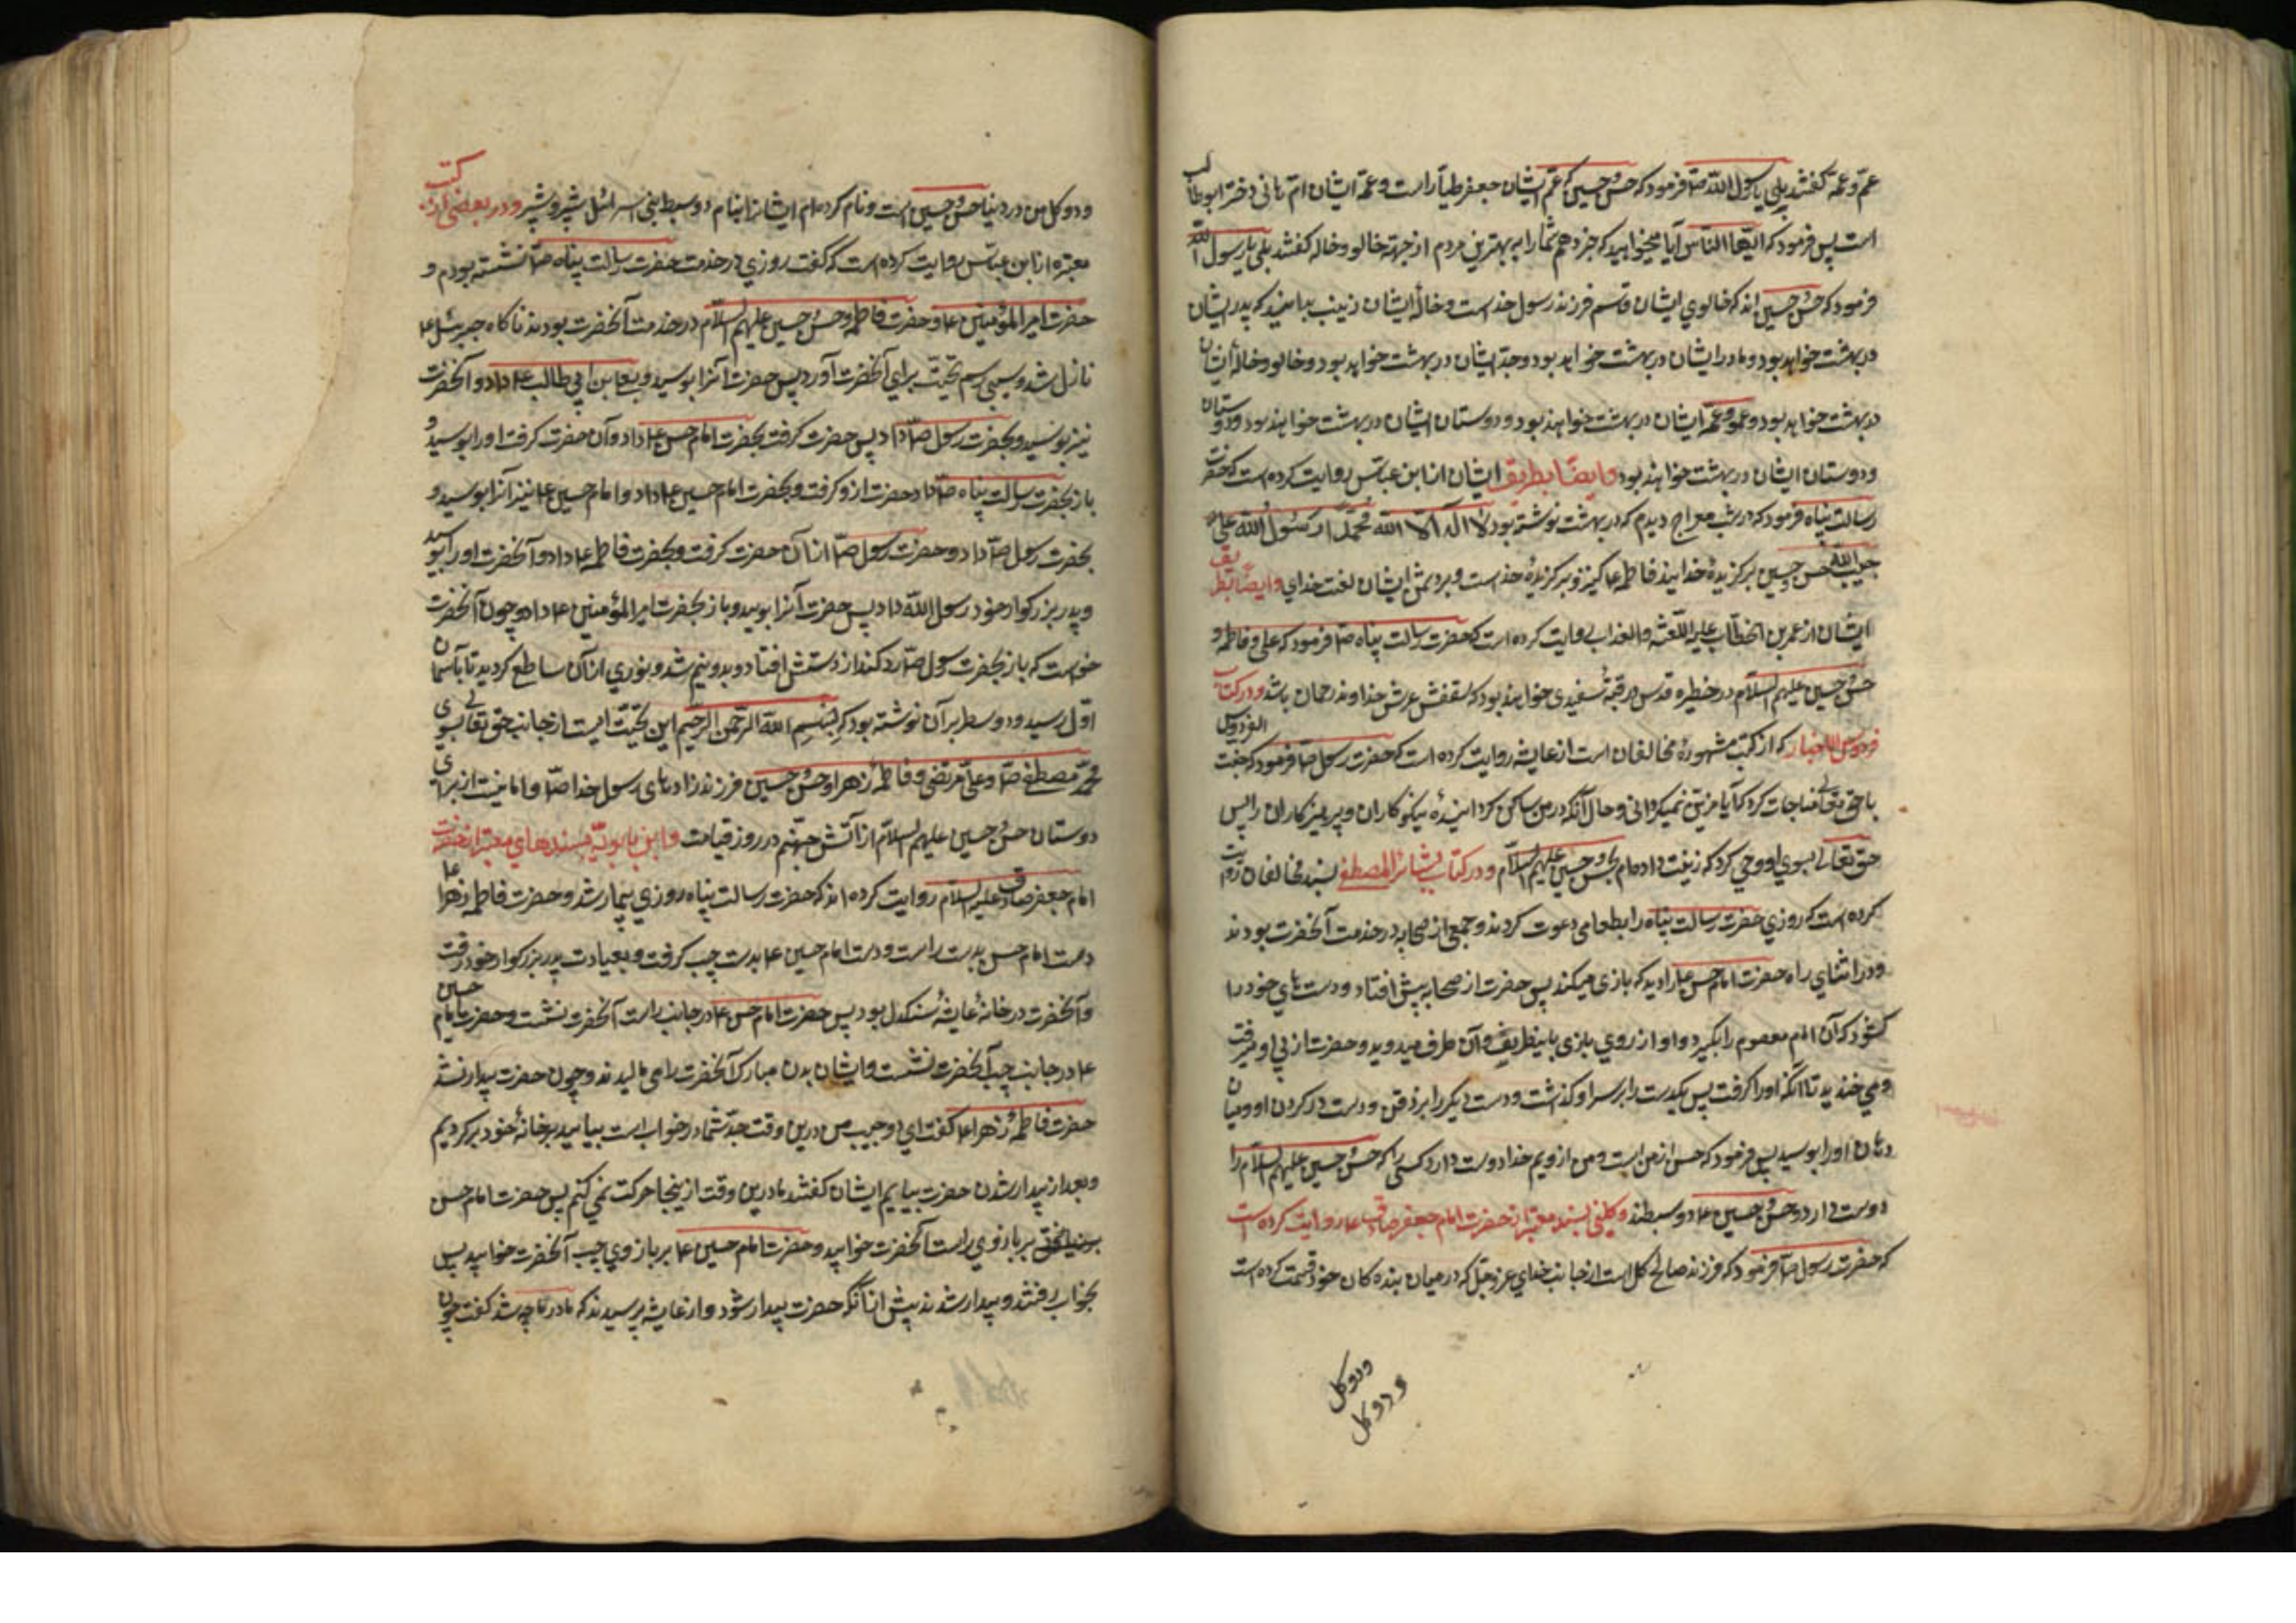 عم و عمه گفتند بلی یا رسول الله صآ فرمود که حسن و حسین که عم ایشان جعفر طیار است و عمه ایشان ام هانی دختر ابوطالب
است پس فرمود که ایها الناس آیا میخواهید که خبر دهم شما را به بهترین مردم از جهة خالو و خاله گفتند بلی یا رسول الله
فرمود که حسن و حسین اند که خالوی ایشان قاسم فرزند رسول خداست و خالهٔ ایشان زینب بدانید که پدر ایشان
در بهشت خواهد بود و مادر ایشان در بهشت خواهد بود و جد ایشان در بهشت خواهد بود و خالو و خالهٔ ایشان
در بهشت خواهد بود و عمو و عمهٔ ایشان در بهشت خواهند بود و دوستان ایشان در بهشت خواهند بود و دوستان
و دوستان ایشان در بهشت خواهند بود و ایضاً بطریق ایشان از ابن عباس روایت کرده است که حضرت
رسالت پناه فرمود که در شب معراج دیدم که در بهشت نوشته بود لا اله الا الله محمد رسول الله علی
حبیب الله حسن و حسین برگزیدهٔ خدایند فاطمه ع کنیز و برگزیدهٔ خداست و بر دشمن ایشان لعنت خدای و ایضاً بطریق
ایشان از عمر بن الخطاب علیه اللعنة والعذاب روایت کرده است که حضرت رسالت پناه صآ فرمود که علی و فاطمه و
حسن و حسین علیهم السلام در حظیره قدس در قبهٔ سفیدی خواهند بود که سقفش عرش خداوند رحمان باشد و در کتاب
فردوس الاخبار که از کتب مشهورهٔ مخالفان است از عایشه روایت کرده است که حضرت رسول صآ فرمود که جنت الفردوس
با حق تعالی مناجات کرد که آیا مزین نمیگردانی و حال آنکه در من ساکن گردانیدهٔ نیکوکاران و پرهیزکاران را پس
حق تعالی بسوی او وحی کرد که زینت داده‌ام بحسن و حسین علیهم السلام و در کتاب بشائر المصطفی بسند مخالفان روایت
کرده است که روزی حضرت رسالت پناه را بطعامی دعوت کردند و جمعی از صحابه در خدمت آنحضرت بودند
و در اثنای راه حضرت امام حسن ع را دید که بازی میکند پس حضرت از صحابه پیش افتاد و دست های خود را
گشود که آن امام معصوم را بگیرد و او از روی بازی باینطریف و آن طرف میدوید و حضرت از پی او میرفت
و می خندید تا آنکه او را گرفت پس یکدست را بر سر او گذاشت و دست دیگر را بر ذقن و دست در گردن او و میان
دهان او را بوسید پس فرمود که حسن از من است و من از ویم خدا دوست دارد کسی را که حسن و حسین علیهم السلام را
دوست دارد و حسن و حسین ع دو سبطند و کلینی بسند معتبر از حضرت امام جعفر صادق ع روایت کرده است
که حضرت رسول صآ فرمود که فرزند صالح گل است از جانب خدای عز و جل که در میان بنده کان خود قسمت کرده است
و دو گل
و دو گل
و دو گل من در دنیا حسن و حسین است و نام کرده‌ام ایشانرا بنام دو سبط بنی اسرائیل شبر و شبیر و در بعضی از کتب
معتبره از ابن عباس روایت کرده است که گفت روزی در خدمت حضرت رسالت پناه صآ نشسته بودم و
حضرت امیر المؤمنین ع و حضرت فاطمه و حسن و حسین علیهم السلام در خدمت آنحضرت بودند ناگاه جبرئیل ع
نازل شد و سیبی برسم تحیت برای آنحضرت آورد پس حضرت آنرا بوسید و بعلی بن ابی طالب ع داد و آنحضرت
نیز بوسید و بحضرت رسول صآ داد پس حضرت گرفت بحضرت امام حسن ع داد و آن حضرت گرفت او را بوسید و
باز بحضرت رسالت پناه صآ داد حضرت ازو گرفت و بحضرت امام حسین ع داد و امام حسین ع نیز آنرا بوسید و
بحضرت رسول صآ داد و حضرت رسول صآ از آن حضرت گرفت و بحضرت فاطمه ع داد و آنحضرت او را بوسید
و پدر بزرکوار خود رسول الله داد پس حضرت آنرا بوسید و باز بحضرت امیر المؤمنین ع داد و چون آنحضرت
خواست که باز بحضرت رسول صآ رد کند از دستش افتاد و بدو نیم شد و نوری از آن ساطع گردید تا بآسمان
اول رسید و دو سطر بر آن نوشته بود که بسم الله الرحمن الرحیم این تحیّت ایست از جانب حق تعالی بسوی
محمد مصطفی صآ و علی مرتضی و فاطمهٔ زهرا و حسن و حسین فرزندزاده‌های رسول خدا صآ و امانیت از برای
دوستان حسن و حسین علیهم السلام از آتش جهنم در روز قیامت و ابن بابویه بسندهای معتبر از حضرت
امام جعفر صادق علیه السلام روایت کرده اند که حضرت رسالت پناه روزی بیمار شد و حضرت فاطمه زهرا ع
دست امام حسن بدست راست و دست امام حسین ع بدست چپ گرفت و بعیادت پدر بزرکوار خود رفت
و آنحضرت در خانهٔ عایشهٔ سنگدل بود پس حضرت امام حسن ع در جانب راست آنحضرت نشست و حضرت امام حسین
ع در جانب چپ آنحضرت نشست و ایشان بدن مبارک آنحضرت را می مالیدند و چون حضرت بیدار نشد
حضرت فاطمهٔ زهرا ع گفت ای دو حبیب من درین وقت جد شما در خواب است بیایید بر خانهٔ خود برگردیم
و بعد از بیدار شدن حضرت بیایم ایشان گفتند ما درین وقت از ینجا حرکت نمی کنیم پس حضرت امام حسن
بر بازوی راست آنحضرت خوابید و حضرت امام حسین ع بر بازوی چپ آنحضرت خوابید پس
بخواب رفتند و بیدار شدند پیش از آنکه حضرت بیدار شود و از عایشه پرسیدند که مادر ما چه شد گفت چون